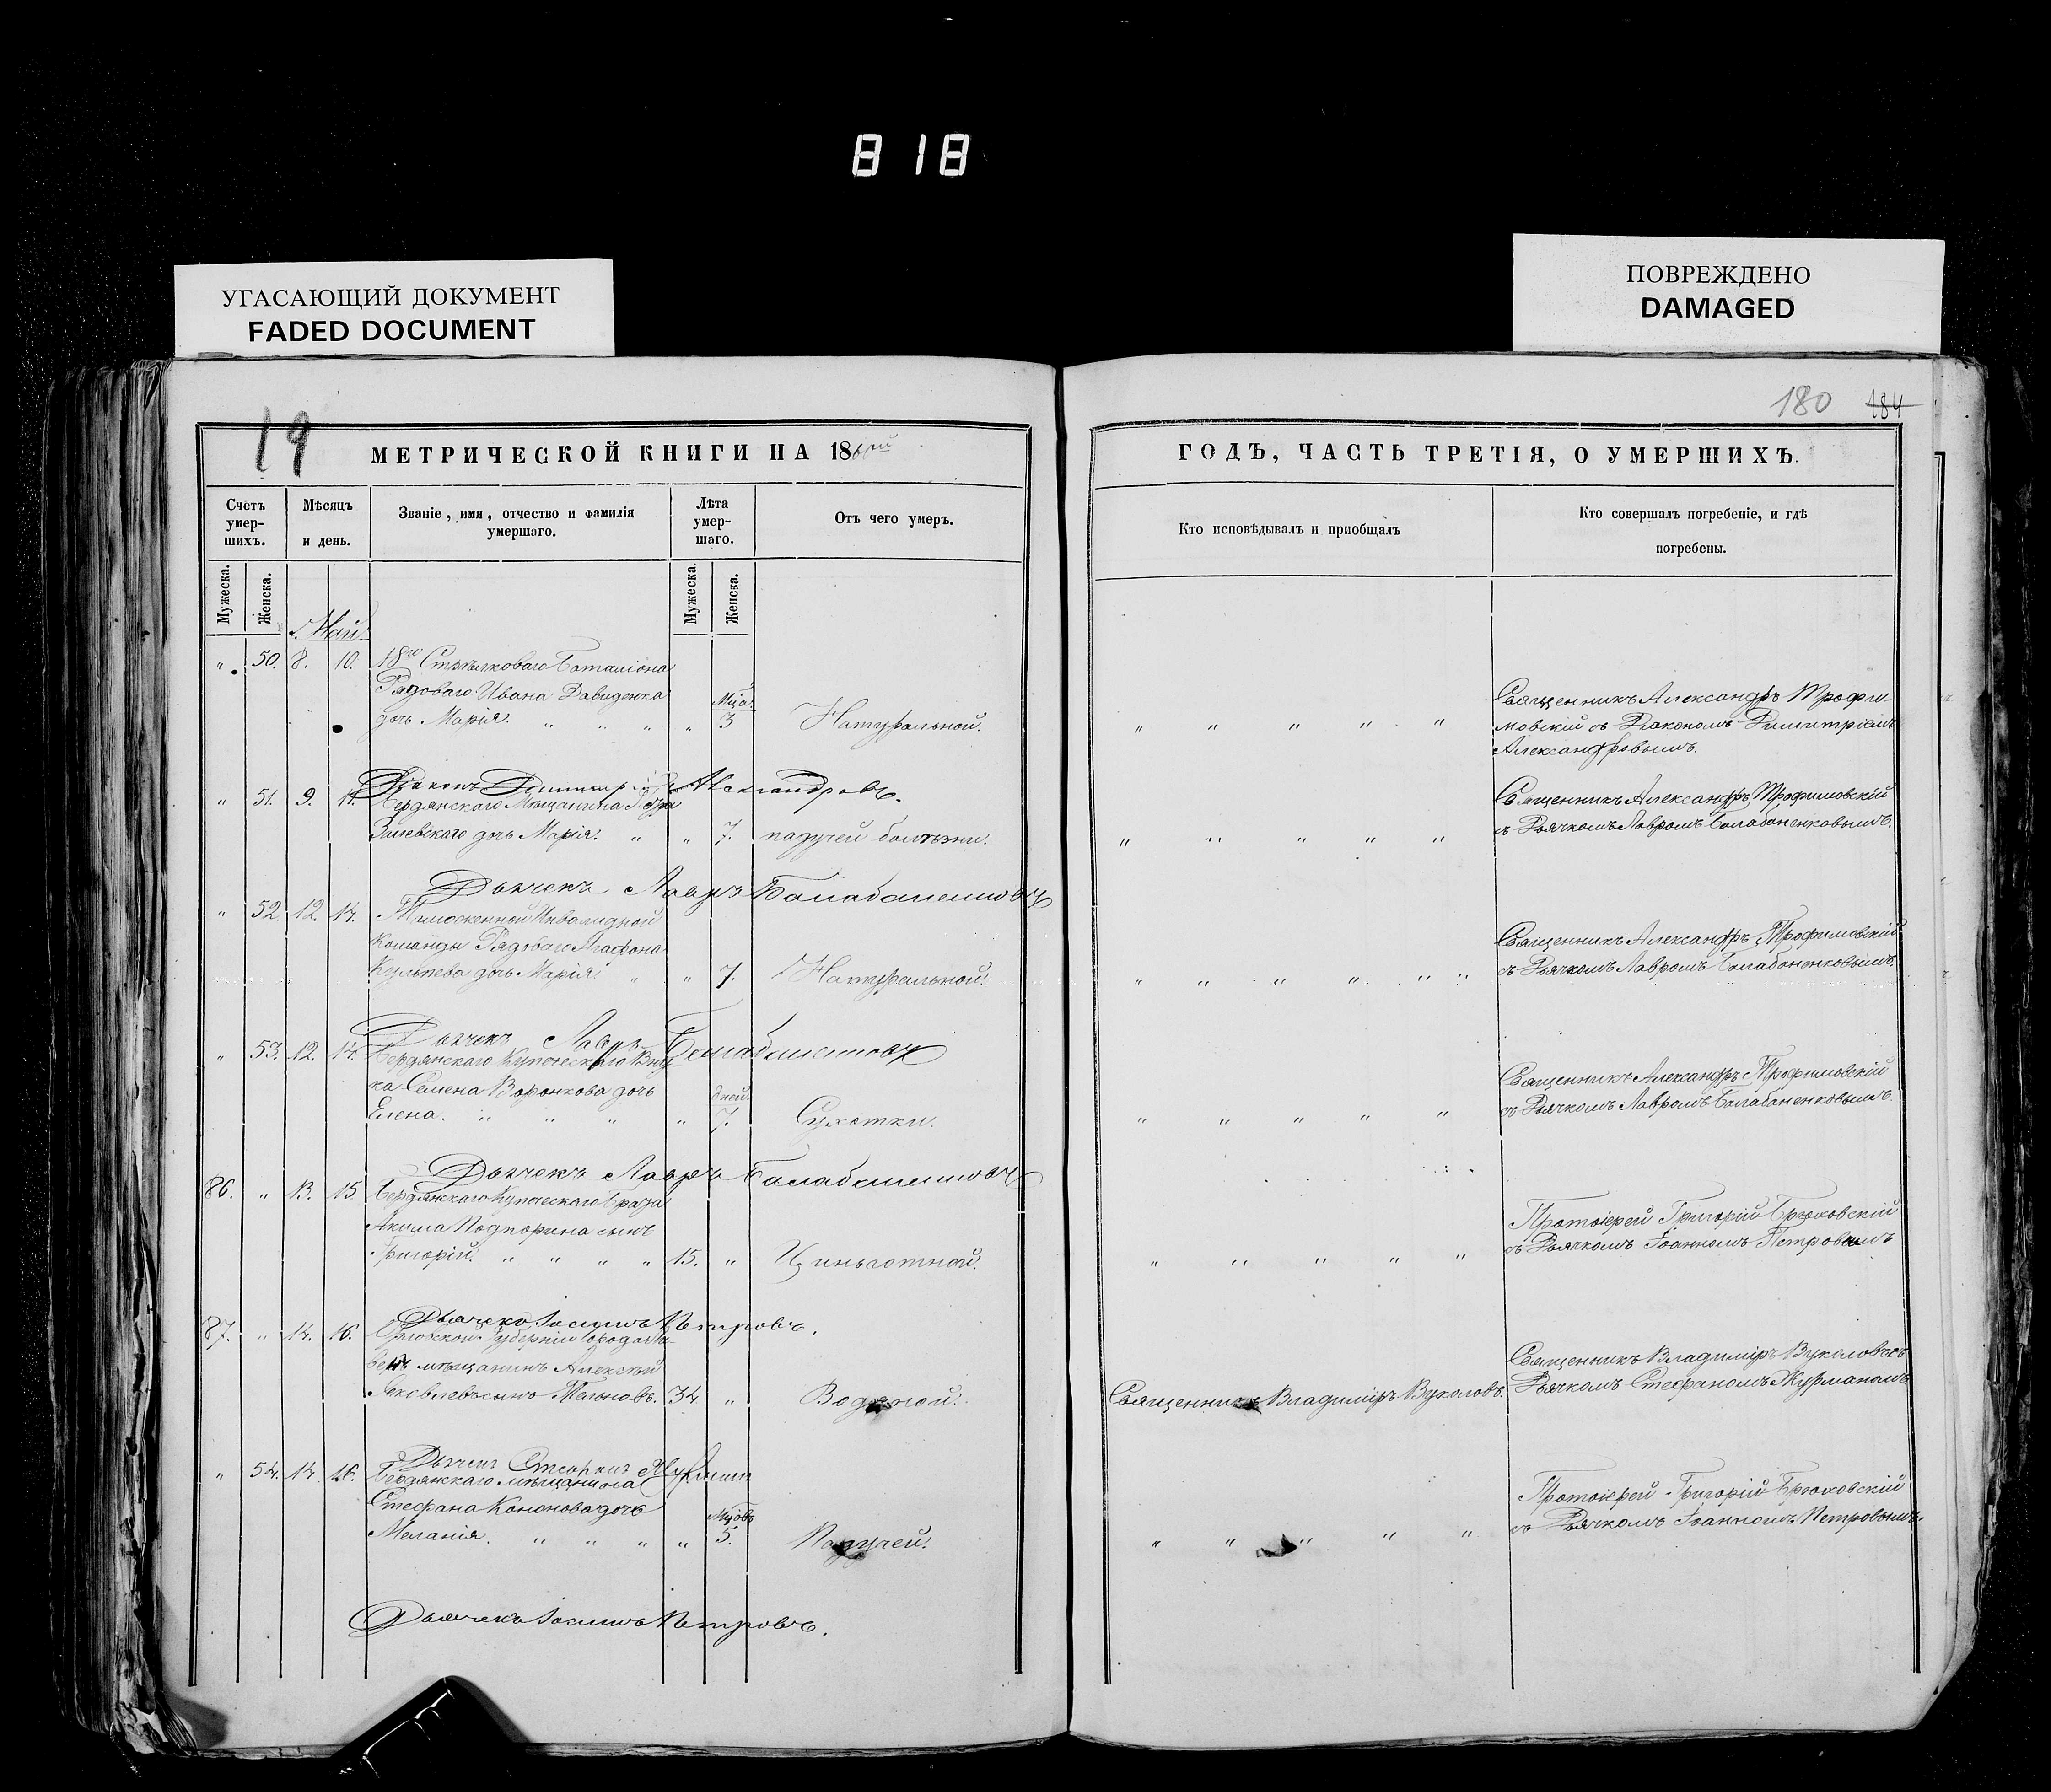 818
УГАСАЮЩИЙ ДОКУМЕНТ
FADED DOCUMENT
ПОВРЕЖДЕНО
DAMAGED
19
МЕТРИЧЕСКОЙ КНИГИ НА 18
Счетъ умер-шихъ.
Мѣсяцъ и день.
Званіе, имя, отчество и фамилія умершаго.
Лѣта умер-шаго.
Отъ чего умеръ.
Мужеска.
Женска.
Мужеска.
Женска.
Май.
" 50. 8. 10. 18го Стрѣлковаго Баталіона
Рядоваго Ивана Давиденка Мца
дочь Марія. " " " " 3 Натуральной.
Діаконъ Димитрій Александровъ.
" 51. 9. 11. Бердянскаго Мѣщанина
дочь Марія. " " 7. падучей болѣзни.
Дьячекъ Лавръ Балабаненковъ
" 52. 12. 14. Инвалидной
Команды Рядоваго Агафона
дочь Марія. " " 7. Натуральной.
Дьячекъ Лавръ Балабаненковъ
" 53. 12. 14. Бердянскаго Купеческаго Вну-
ка Семена Воронкова дочь дней
Елена. " " " " 7. Сухотки.
Дьячекъ Лавръ Балабаненковъ
86. " 13. 15. Бердянскаго Купеческаго брата
Акима Подпорина сынъ
Григорій. " " " " 15. " Цынготной.
Дьячекъ Іоаннъ Петровъ.
87. " 14. 16. Губерніи
мѣщанинъ Алексѣй
Яковлевъ сынъ 34. " Водяной.
Дьячекъ Стефанъ Журманъ
" 54. 14. 16. Бердянскаго мѣщанина
Стефана Кононова дочь Мцовъ
Меланія. " " " " 5. Падучей.
Дьячекъ Іоаннъ Петровъ.
180 184
ГОДЪ, ЧАСТЬ ТРЕТІЯ, О УМЕРШИХЪ.
Кто исповѣдывалъ и пріобщалъ
Кто совершалъ погребеніе, и гдѣ погребены.
Священникъ Александръ Трофи-
мовскій съ Діакономъ Димитріемъ
" " " " "
Александровымъ.
Священникъ Александръ Трофимовскій
съ Дьячкомъ Лавромъ Балабаненковымъ.
" " " " "
Священникъ Александръ Трофимовскій
съ Дьячкомъ Лавромъ Балабаненковымъ.
" " " " " "
Священникъ Александръ Трофимовскій
" " " " " съ Дьячкомъ Лавромъ Балабаненковымъ.
Протоіерей Григорій Брюховскій
" " " " " съ Дьячкомъ Іоанномъ Петровымъ
Священникъ Владиміръ Вуколовъ съ
Священникъ Владиміръ Вуколовъ. Дьячкомъ Стефаномъ Журманомъ
Протоіерей Григорій Брюховскій
" " " " " съ Дьячкомъ Іоанномъ Петровымъ.